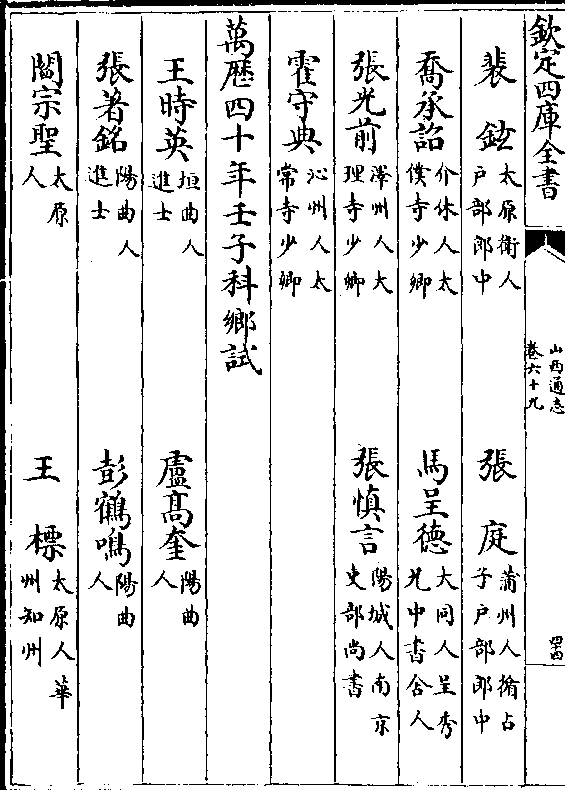 欽定四庫全書
山西通志
卷六十九
裴鈫太原衛人戶部郎中
張庭蒲州人脩占子戶部郎中
喬承詔介休人太僕寺少卿
馬呈德大同人呈秀兄中書舍人
張光前澤州人大理寺少卿
張慎言陽城人南京吏部尚書
霍守典沁州人太常寺少卿
萬歷四十年壬子科鄉試
王時英垣曲人進士
盧髙奎陽曲人
張著銘陽曲人進士
彭鶴鳴陽曲人
閻宗聖太原人
王標太原人華州知州